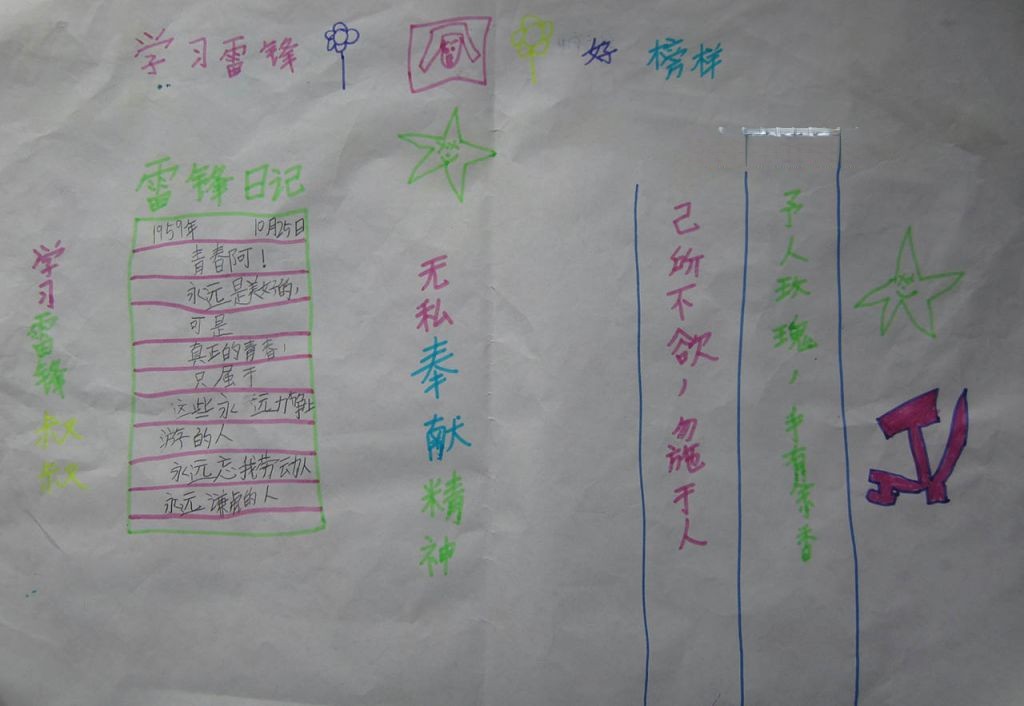 学习雷锋 好 榜样
雷锋日记
1959年 10月25日
青春阿！
永远是美好的，
可是
真正的青春，
只属于
这些永远力争上
游的人
永远忘我劳动人
永远谦虚的人
学习雷锋叔叔
无私奉献精神
己所不欲，勿施于人
予人玫瑰，手有余香